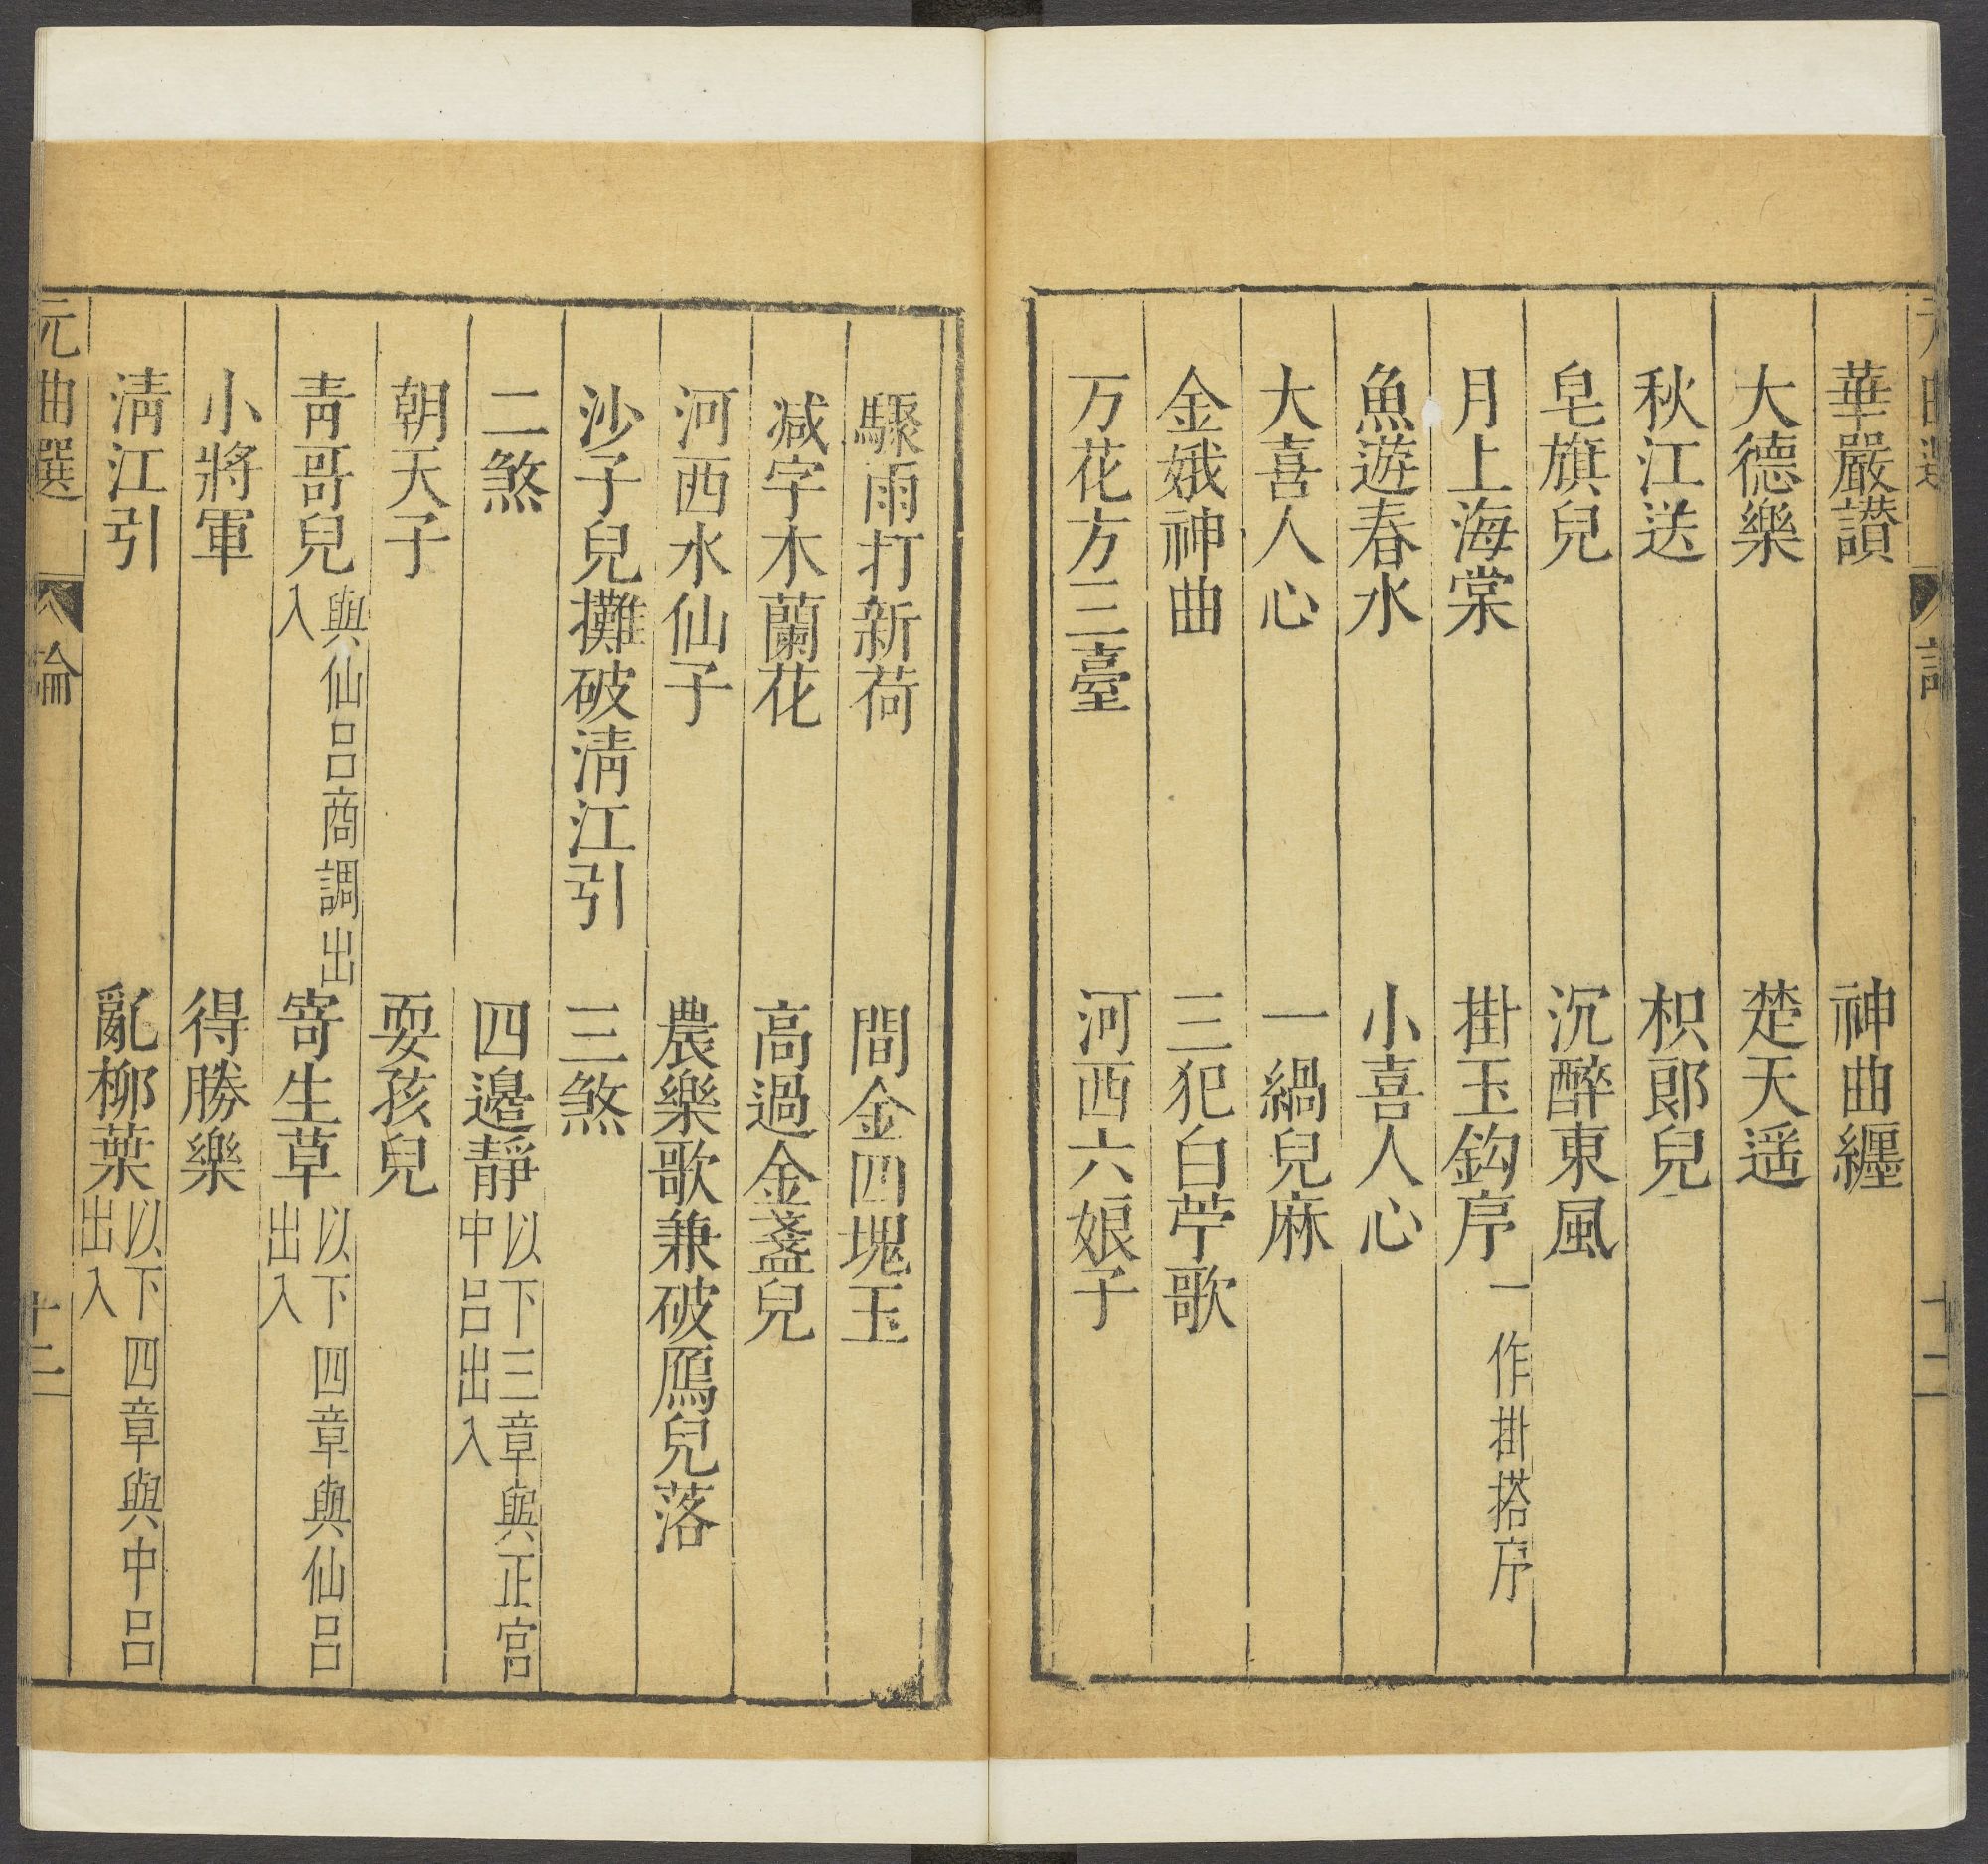 華嚴讃　神曲纏
大德樂　楚天遥
秋江送　枳郎兒
皂旗兒　沉醉東風
月上海棠　掛玉鈎序一作掛搭序
魚遊春水　小喜人心
大喜人心　一緺兒麻
金娥神曲　三犯白苧歌
万花方三臺　河西六娘子
驟雨打新荷　間金四塊玉
减字木蘭花　高過金盞兒
河西水仙子　農樂歌兼破鴈兒落
沙子兒攤破淸江引　三煞
二煞　四邉靜以下三章與正宫中吕出入
朝天子　耍孩兒
靑哥兒與仙吕商調出入　寄生草以下四章與仙吕出入
小將軍　得勝樂
淸江引　亂柳葉以下四章與中吕出入
元曲選　論　十二